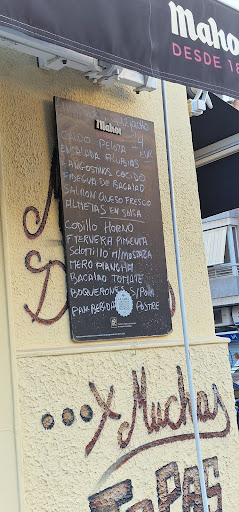 Mahou
DESDE 18
Mahou
CALDO PELOTA
ENSALADA ALUBIAS
LANGOSTINOS COCIDO
FIDEGUA DE BACALAO
SALMON QUESO FRESCO
ALMEJAS EN SALSA
CODILLO HORNO
F TERNERA PIMIENTA
SOLOMILLO M/MOSTAZA
MERO PLANCHA
BACALAO TOMATE
BOQUERONES S/PLAN
PAN BEBIDA POSTRE
...X Muchas
TAPAS